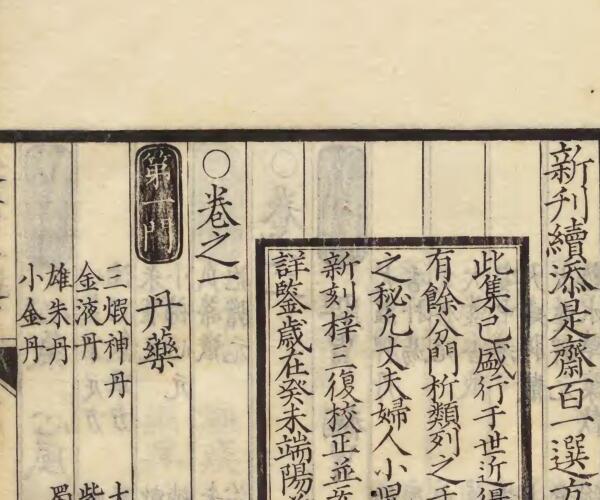 新刋續添是齋百一選方
此集已盛行于世近
有餘分門析類列之于
之秘凢丈夫婦人小児
新刻梓三復校正並
詳鍳歳在癸未端陽
○卷之一
第一門 丹藥
三煆神丹
金液丹
雄朱丹
小金丹